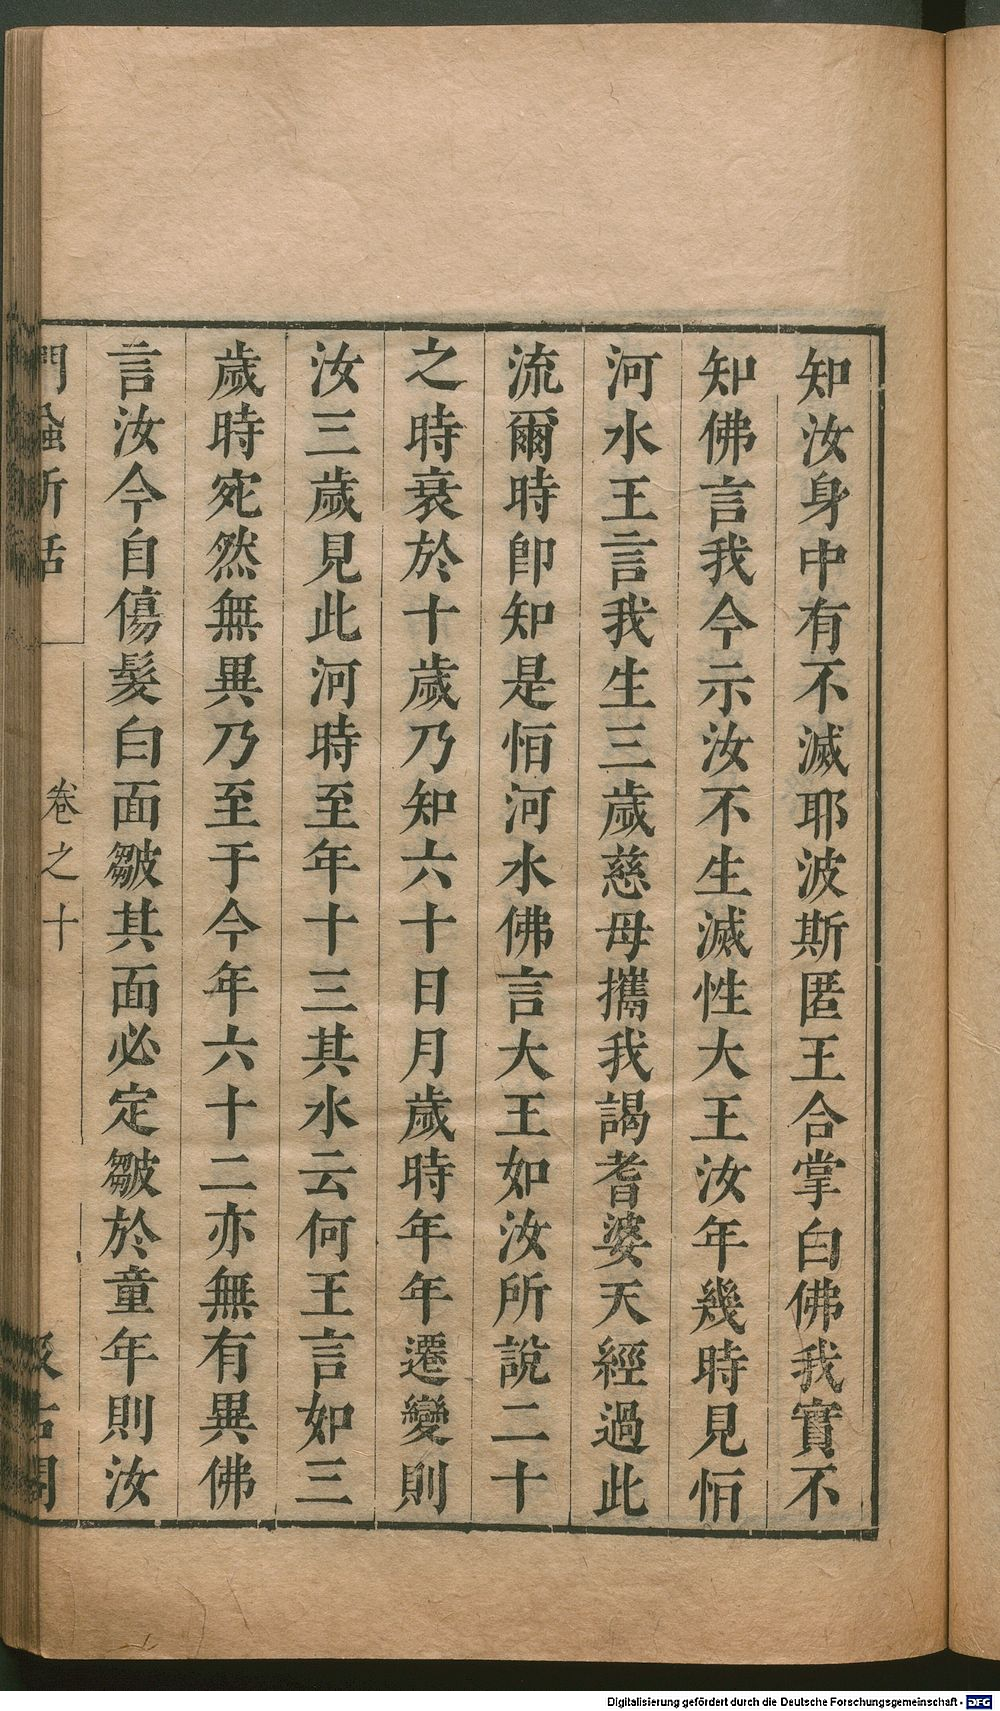 知汝身中有不滅耶波斯匿王合掌白佛我實不
知佛言我今示汝不生滅性大王汝年幾時見恒
河水王言我生三歲慈母攜我謁耆婆天經過此
流爾時卽知是恒河水佛言大王如汝所說二十
之時衰於十歲乃知六十日月歲時年年遷變則
汝三歲見此河時至年十三其水云何王言如三
歲時宛然無異乃至于今年六十二亦無有異佛
言汝今自傷髮白面皺其面必定皺於童年則汝
卷之十
Digitalisierung gefördert durch die Deutsche Forschungsgemeinschaft - DFG